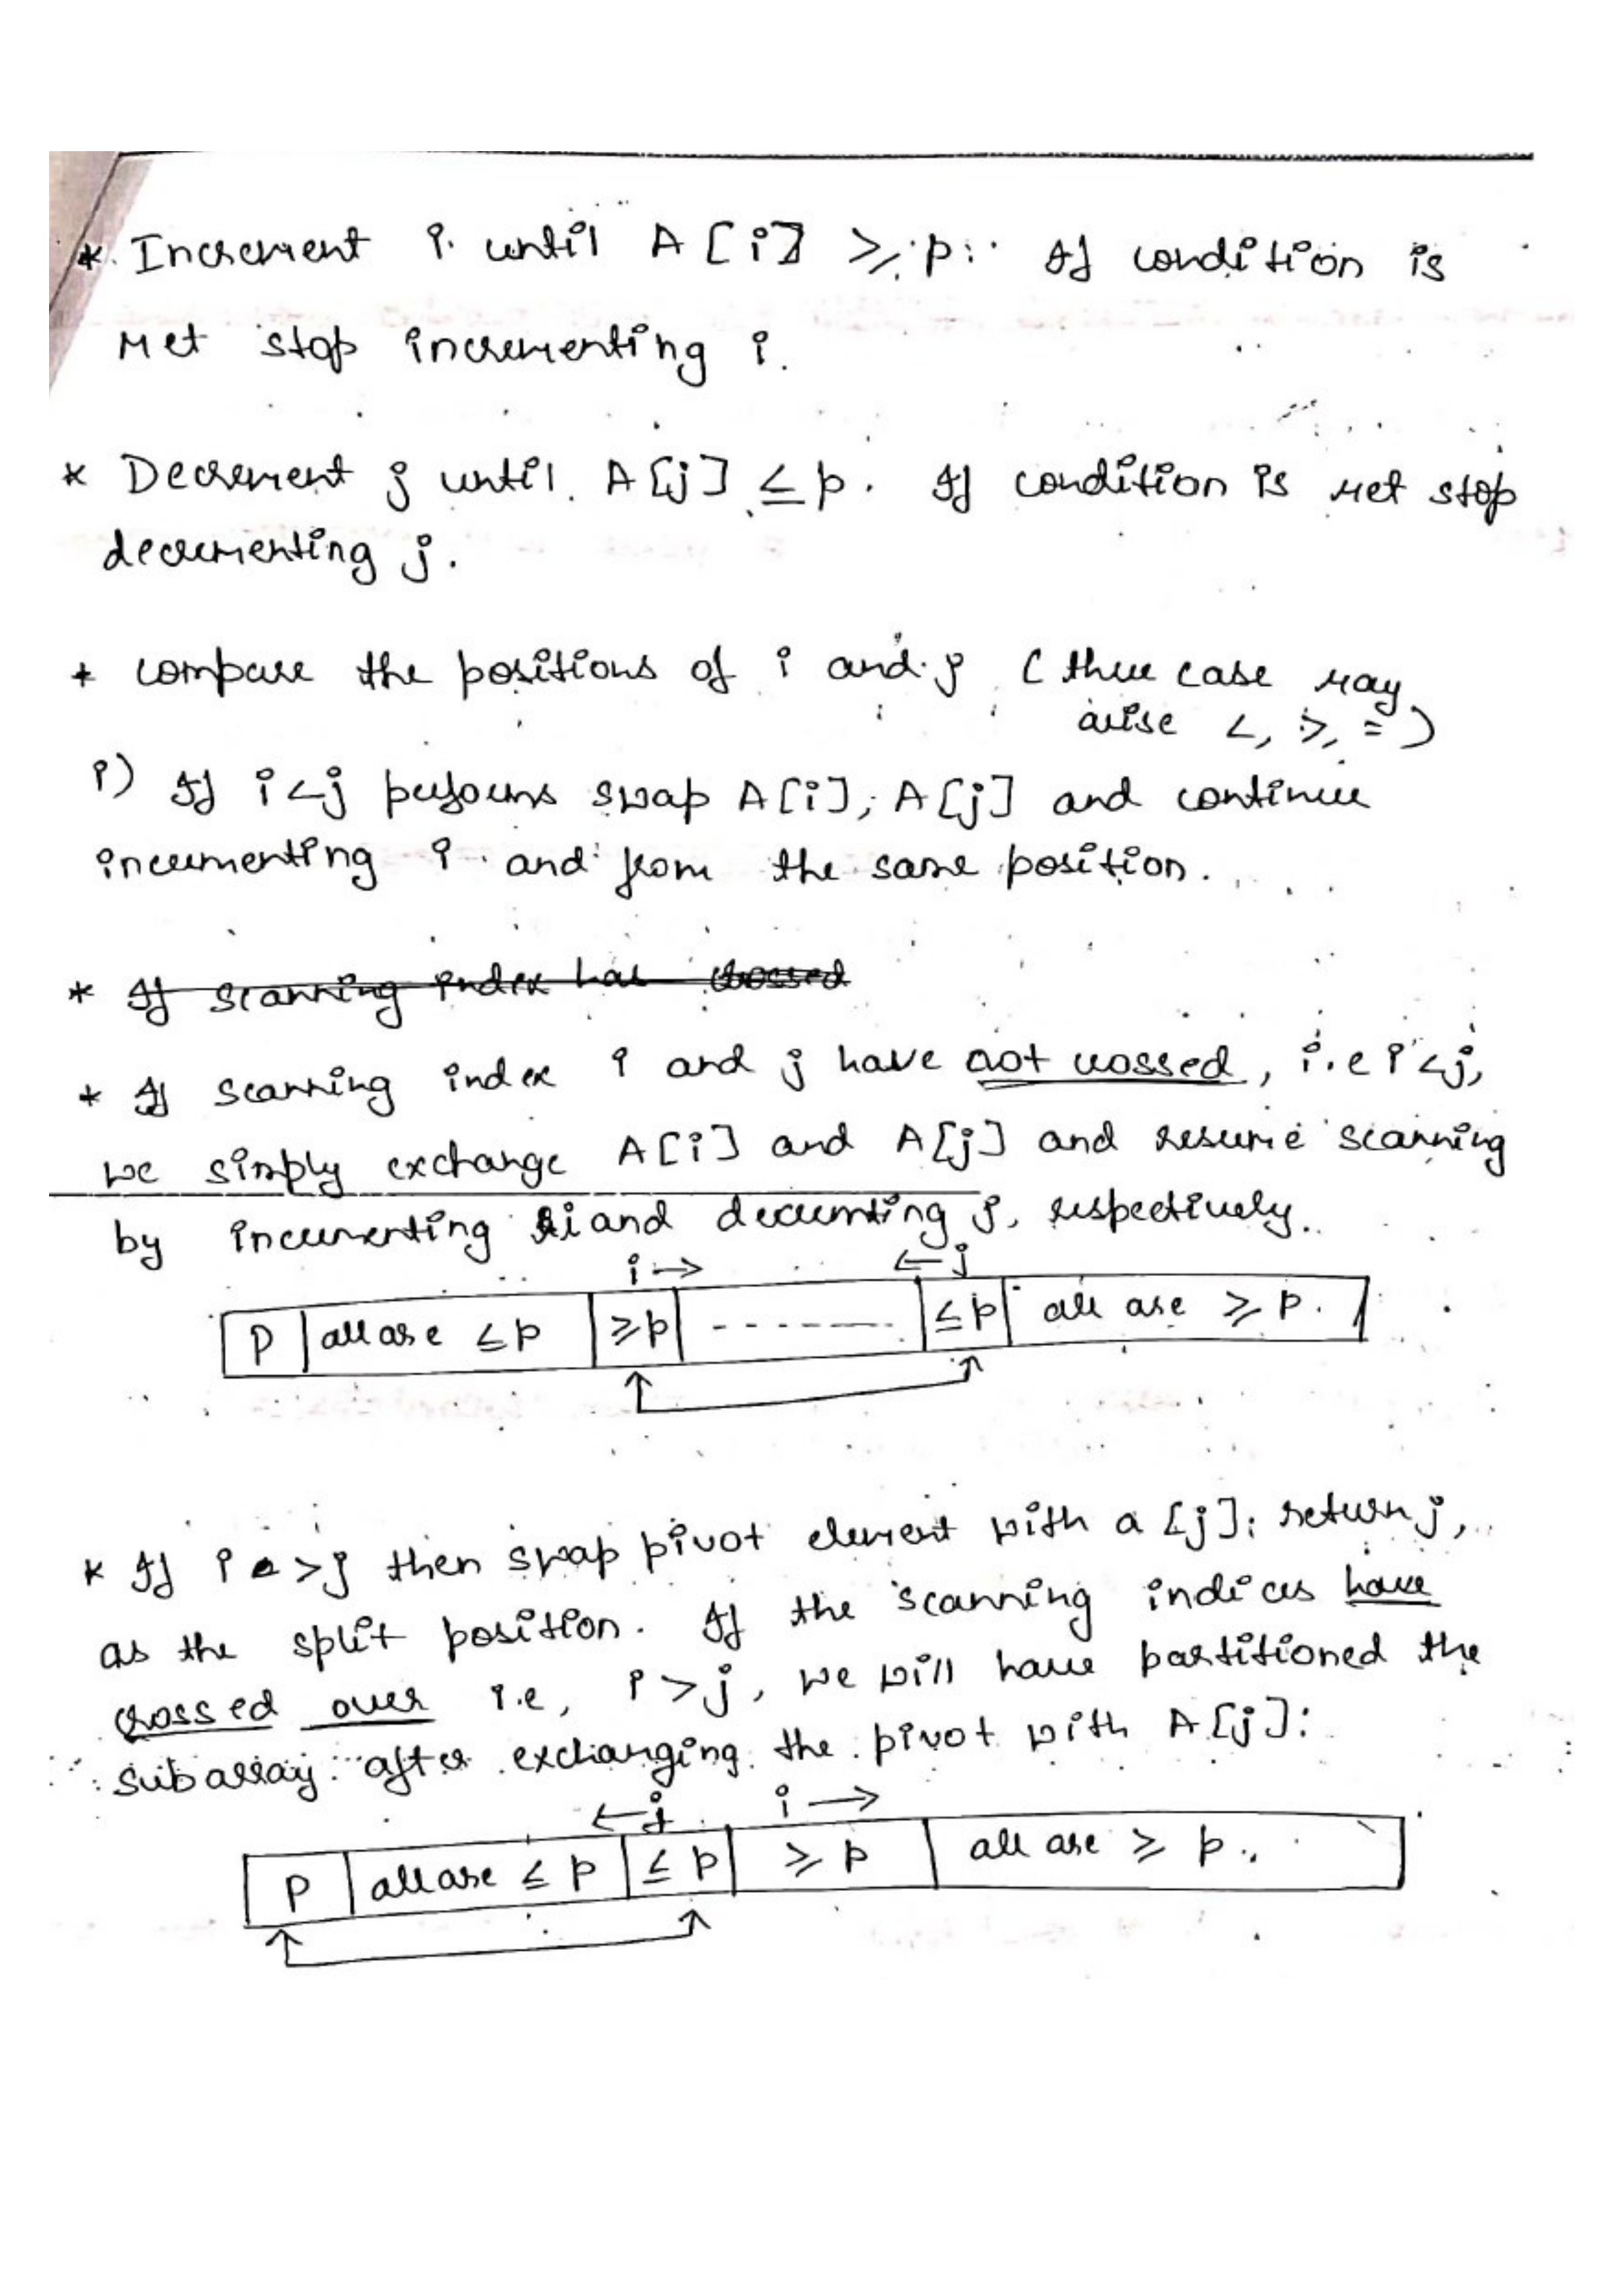 * Increment i until A[i] ≥ p. If condition is
Met stop incrementing i.
* Decrement j until A[j] ≤ p. If condition is met stop
decrementing j.
* compare the positions of i and j (three case may
arise <, >, =)
i) If i<j performs swap A[i], A[j] and continue
incrementing i and from the same position.
* If scanning index has crossed
* If scanning index i and j have not crossed, i.e i<j,
we simply exchange A[i] and A[j] and resume scanning
by incrementing i and decrementing j, respectively.
i → ← j
P all are ≤p ≥p -------- ≤p all are ≥ p.
* If i >j then swap pivot element with a[j]; return j,
as the split position. If the scanning indices have
crossed over i.e, i >j, we will have partitioned the
subarray after exchanging the pivot with A[j]:
← j i →
P all are ≤ p ≤ p ≥ p all are ≥ p.